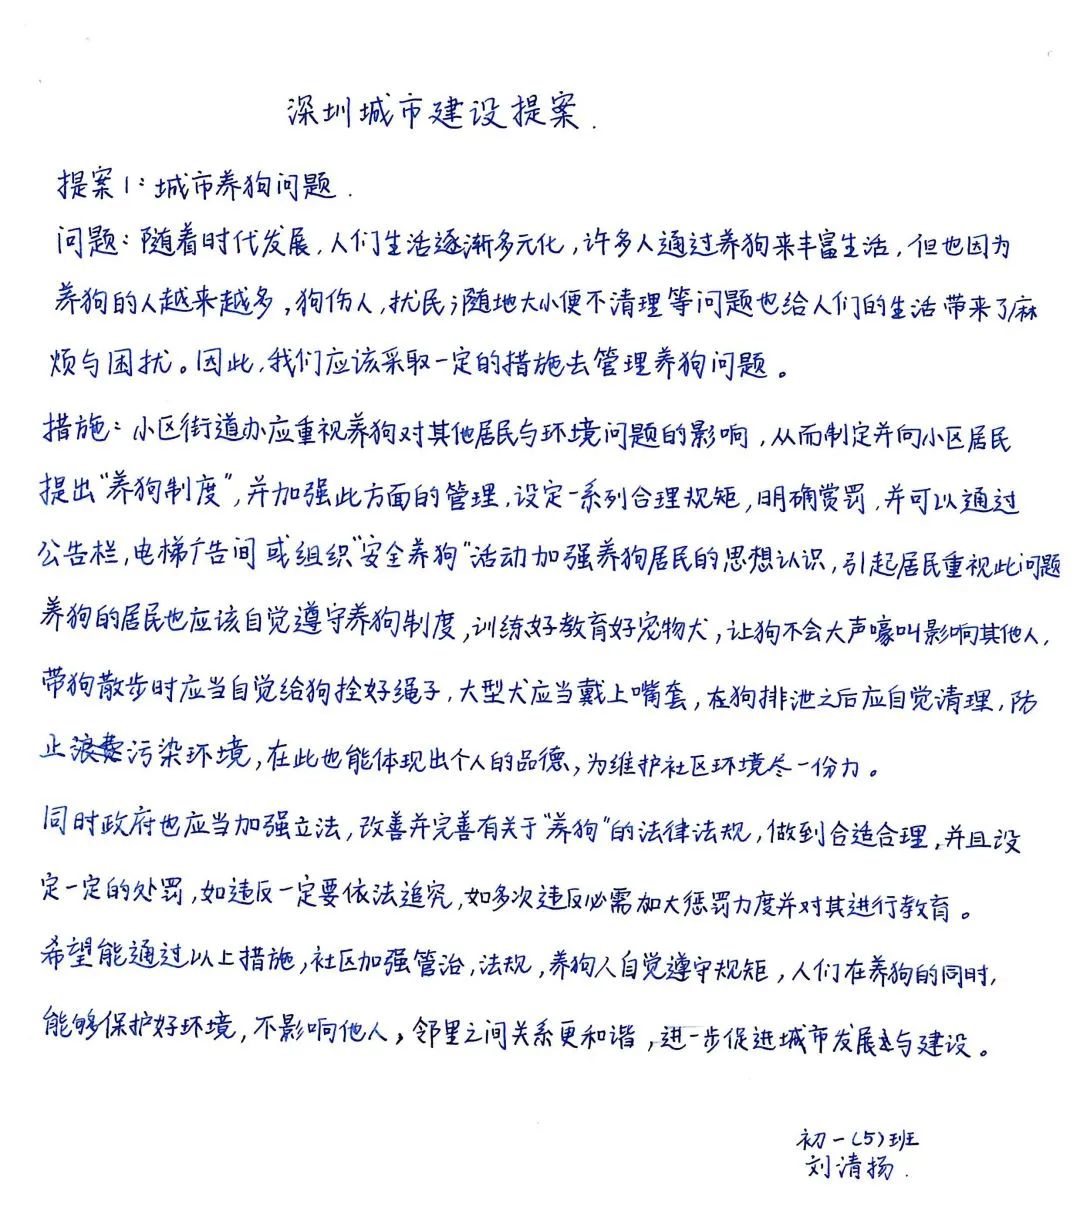 深圳城市建设提案.
提案1:城市养狗问题.
问题:随着时代发展,人们生活逐渐多元化,许多人通过养狗来丰富生活,但也因为
养狗的人越来越多,狗伤人,扰民,随地大小便不清理等问题也给人们的生活带来了麻
烦与困扰。因此,我们应该采取一定的措施去管理养狗问题。
措施:小区街道办应重视养狗对其他居民与环境问题的影响,从而制定并向小区居民
提出“养狗制度”,并加强此方面的管理,设定一系列合理规矩,明确赏罚,并可以通过
公告栏,电梯广告间或组织“安全养狗”活动加强养狗居民的思想认识,引起居民重视此问题
养狗的居民也应该自觉遵守养狗制度,训练好教育好宠物犬,让狗不会大声嚎叫影响其他人,
带狗散步时应当自觉给狗拴好绳子,大型犬应当戴上嘴套,在狗排泄之后应自觉清理,防
止污染环境,在此也能体现出个人的品德,为维护社区环境尽一份力。
同时政府也应当加强立法,改善并完善有关于“养狗”的法律法规,做到合适合理,并且设
定一定的处罚,如违反一定要依法追究,如多次违反必需加大惩罚力度并对其进行教育。
希望能通过以上措施,社区加强管治,法规,养狗人自觉遵守规矩,人们在养狗的同时,
能够保护好环境,不影响他人,邻里之间关系更和谐,进一步促进城市发展与建设。
初一(5)班
刘清扬.